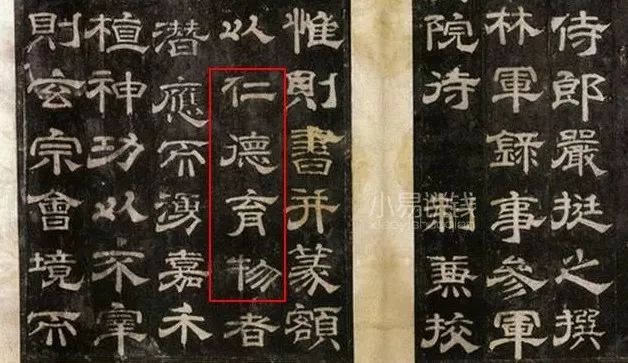 侍郎嚴挺之撰
林軍錄事參軍
院待制兼挍
惟則書并篆額
以仁德育物者
潛應而湧嘉禾
植神功以不宰
則玄宗會境而
小易说钱